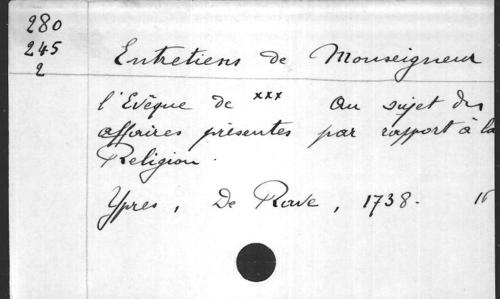 280
245
2
Entretiens de Monseigneur
l'Evêque de xxx Au sujet des
affaires présentes par rapport à la
Religion.
Ypres, De Rave, 1738.